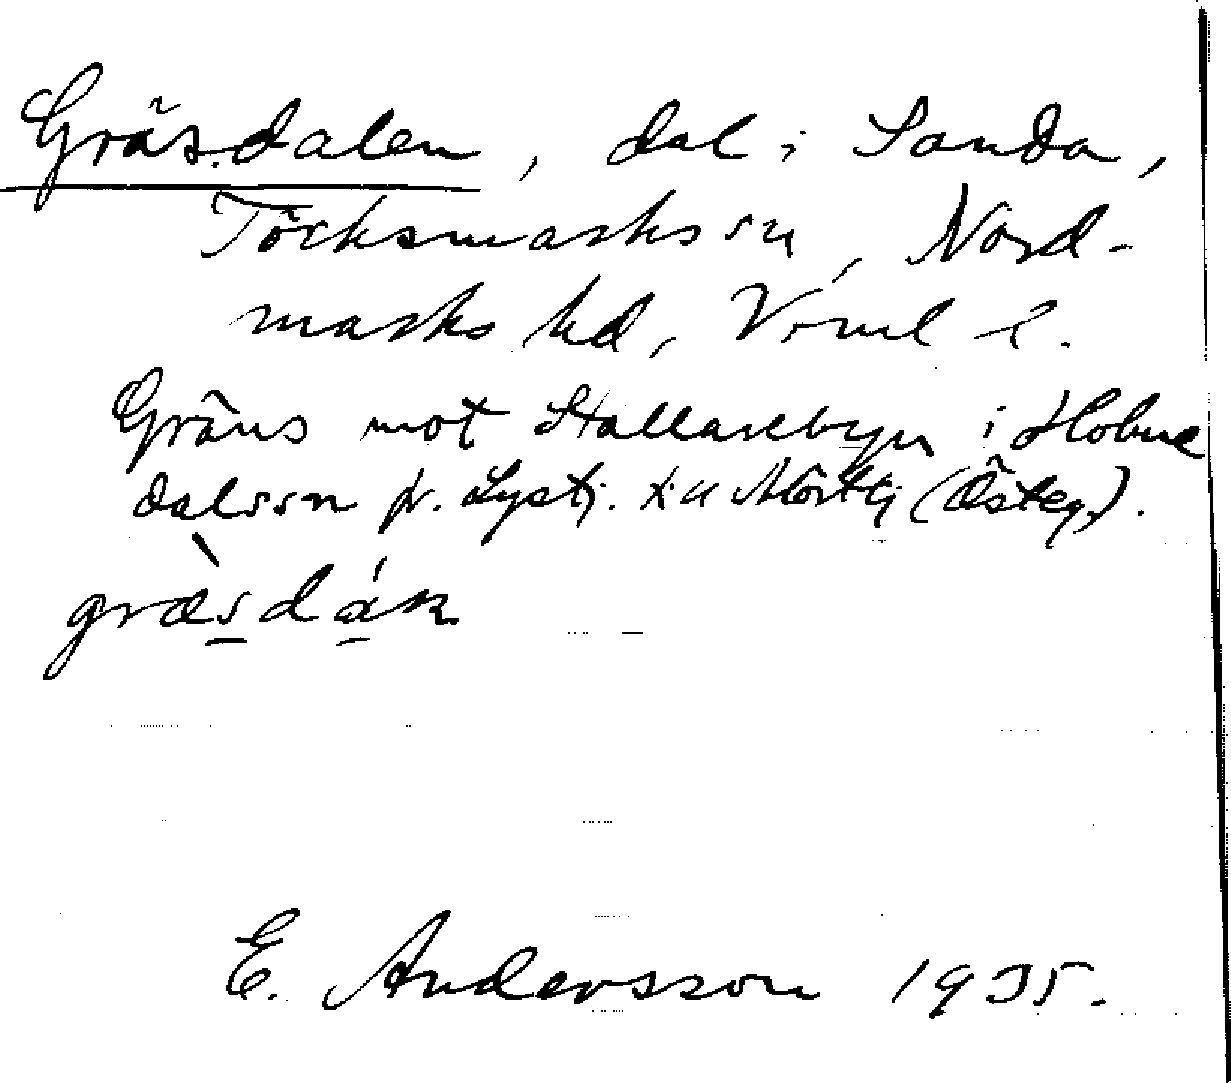 Gräsdalen, dal i Sanda,
Töcksmarks sn, Nord-
marks hd, Värml l.
Gräns mot Stallarebyn i Holme
dals sn fr. Lystj. till Mörttj (Östeg.).
græ̀sdán
E. Andersson 1935.